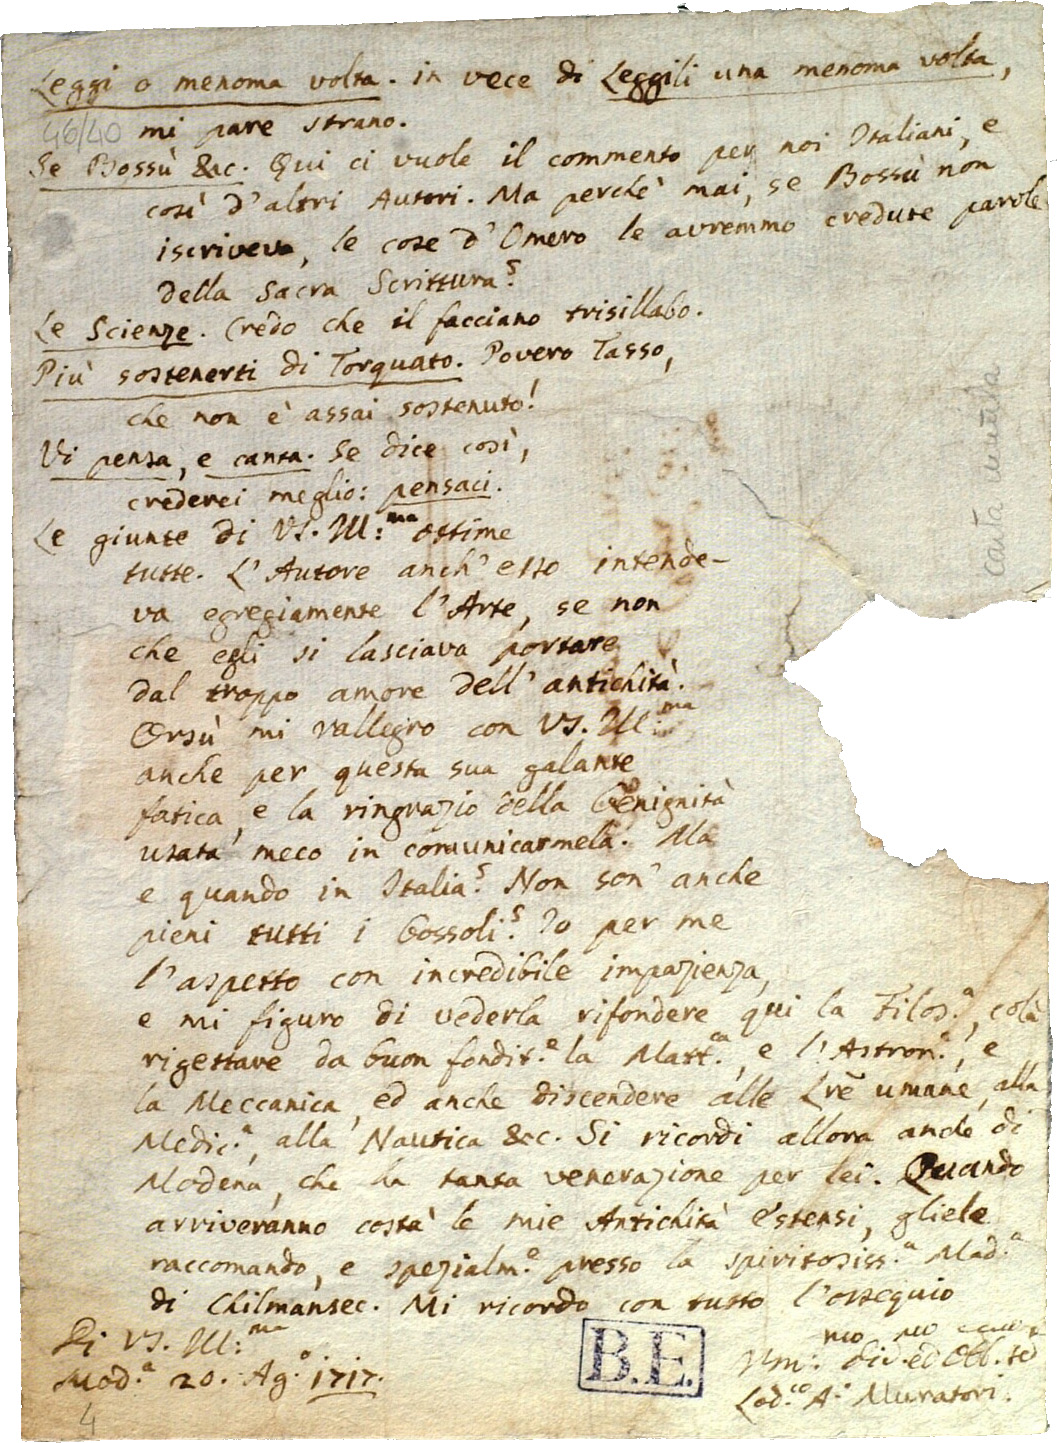 Leggi o menoma volta. in vece di Leggili una menoma volta,
46/40 mi pare strano.
Se Bossù &c. Qui ci vuole il commento per noi Italiani, e
così d'altri Autori. Ma perchè mai, se Bossù non
iscriveva, le cose d'Omero le avremmo credute parole
della Sacra Scrittura?
Le Scienze. Credo che il facciano trisillabo.
Più sostenerti di Torquato. Povero Tasso,
che non è assai sostenuto!
Vi pensa, e canta. Se dice così,
crederei meglio: pensaci.
Le giunte di VS. Ill:ma ottime
tutte. L'Autore anch'esso intende-
va egregiamente l'Arte, se non
che egli si lasciava portare
dal troppo amore dell'antichità.
Orsù mi rallegro con VS. Ill:ma
anche per questa sua galante
fatica, e la ringrazio della benignità
usata meco in comunicarmela. Ma
e quando in Italia? Non son' anche
pieni tutti i bossoli? Io per me
l'aspetto con incredibile impazienza,
e mi figuro di vederla rifondere qui la Filos.a, colà
rigettare da buon fondit.e la Matt.ca, e l'Astron.a, e
la Meccanica, ed anche discendere alle Lre umane, alla
Medic.a, alla Nautica &c. Si ricordi allora anche di
Modena, che ha tanta venerazione per lei. Quando
arriveranno costà le mie Antichità Estensi, gliele
raccomando, e spezialm.e presso la spiritosiss.a Mad.a
di Chilmansec. Mi ricordo con tutto l'ossequio
Di VS. Ill:ma
Mod.a 20. Ag.o 1717.
Um:mo div. ed Obb.
Lod.co A. Muratori.
B.E.
4
carta mutila